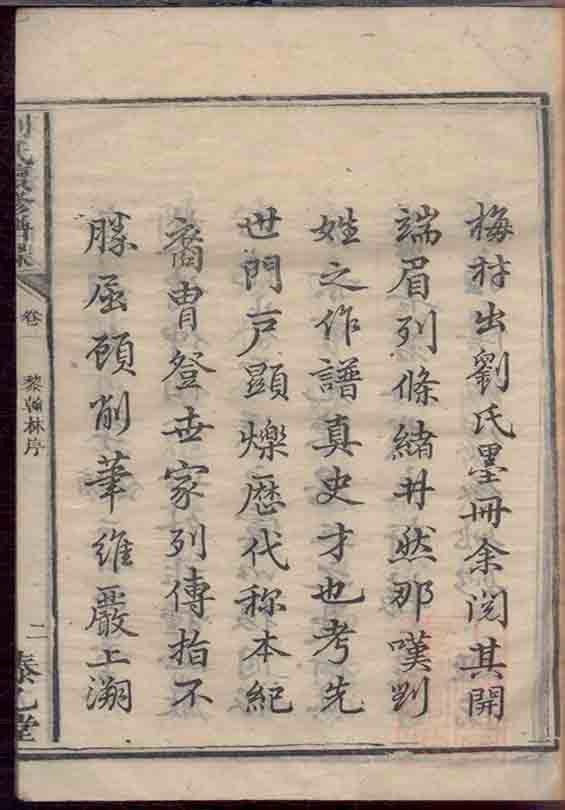 梅村出劉氏墨冊余閱其開
端眉列條緒井然那嘆劉
姓之作譜真史才也考先
世門戸顯爍歴代称本紀
裔胄登世家列傳指不
勝屈顧削筆維嚴上溯
卷一
黎翰林序
二